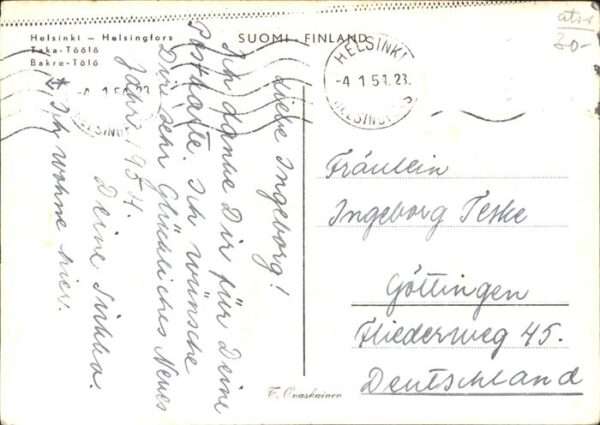 Helsinki — Helsingfors
Taka-Töölö
Bakre-Tölö
SUOMI - FINLAND
HELSINKI
-4.1.51.23
HELSINGFORS
30-
Liebe Ingeborg!
Ich danke Dir für Deine
Postkarte. Ich wünsche
Dir sehr Glückliches Neues
Jahr 1951.
Deine Sirkka.
Ich wohne hier.
Fräulein
Ingeborg Teske
Göttingen
Fliederweg 45.
Deutschland
F. Ovaskainen